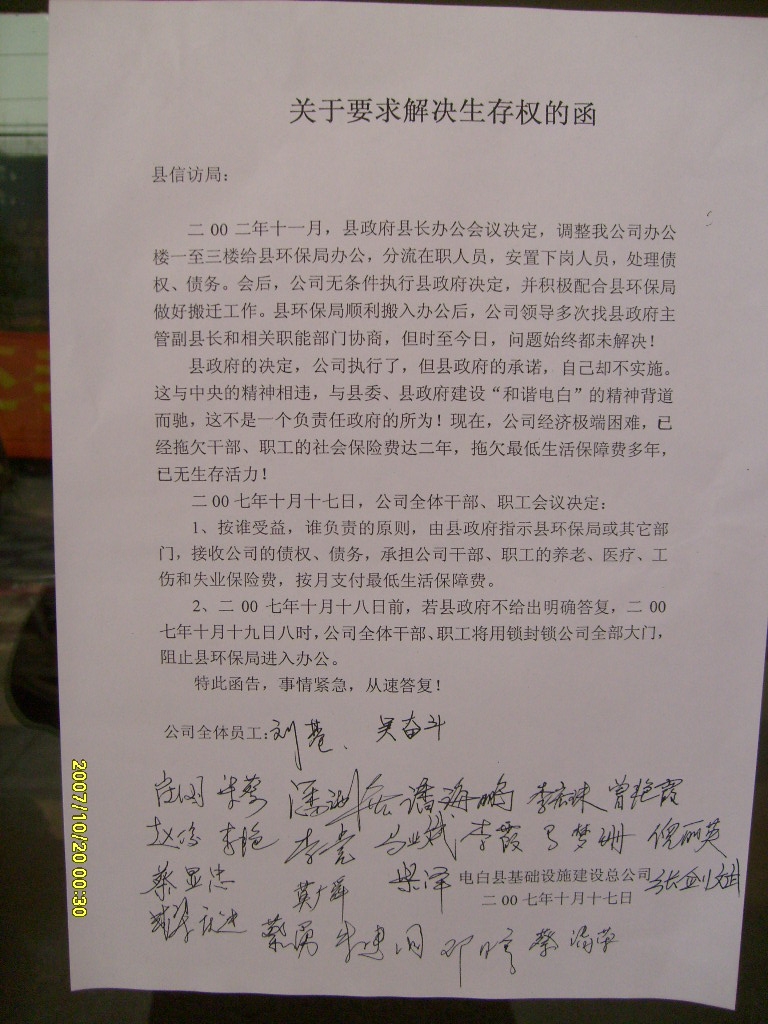 关于要求解决生存权的函
县信访局：
二00二年十一月，县政府县长办公会议决定，调整我公司办公
楼一至三楼给县环保局办公，分流在职人员，安置下岗人员，处理债
权、债务。会后，公司无条件执行县政府决定，并积极配合县环保局
做好搬迁工作。县环保局顺利搬入办公后，公司领导多次找县政府主
管副县长和相关职能部门协商，但时至今日，问题始终都未解决！
县政府的决定，公司执行了，但县政府的承诺，自己却不实施。
这与中央的精神相违，与县委、县政府建设“和谐电白”的精神背道
而驰，这不是一个负责任政府的所为！现在，公司经济极端困难，已
经拖欠干部、职工的社会保险费达二年，拖欠最低生活保障费多年，
已无生存活力！
二00七年十月十七日，公司全体干部、职工会议决定：
1、按谁受益，谁负责的原则，由县政府指示县环保局或其它部
门，接收公司的债权、债务，承担公司干部、职工的养老、医疗、工
伤和失业保险费，按月支付最低生活保障费。
2、二00七年十月十八日前，若县政府不给出明确答复，二00
七年十月十九日八时，公司全体干部、职工将用锁封锁公司全部大门，
阻止县环保局进入办公。
特此函告，事情紧急，从速答复！
公司全体员工：刘 吴奋斗
潘海鹏 曾艳霞
李艳 李亮 李霞 倪丽英
蔡显忠 梁泽 电白县基础设施建设总公司
二00七年十月十七日
蔡勇
2007/10/20 00:30